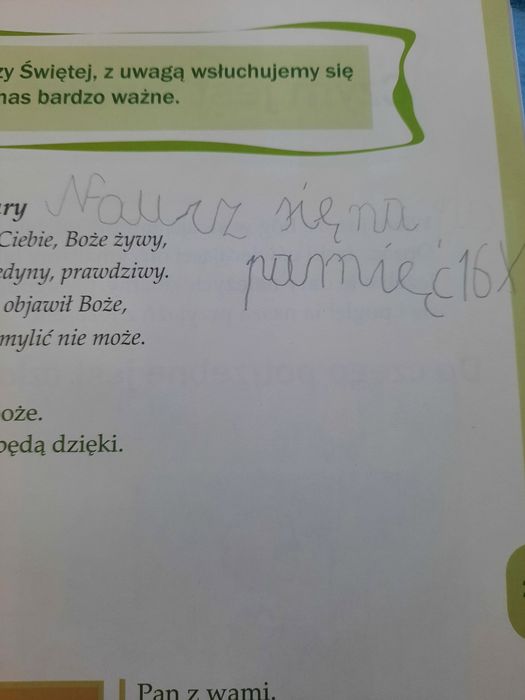 zy Świętej, z uwagą wsłuchujemy się
nas bardzo ważne.
ary Naucz się na
Ciebie, Boże żywy,
pamięć 16 X
edyny, prawdziwy.
objawił Boże,
mylić nie może.
oże.
będą dzięki.
Pan z wami.